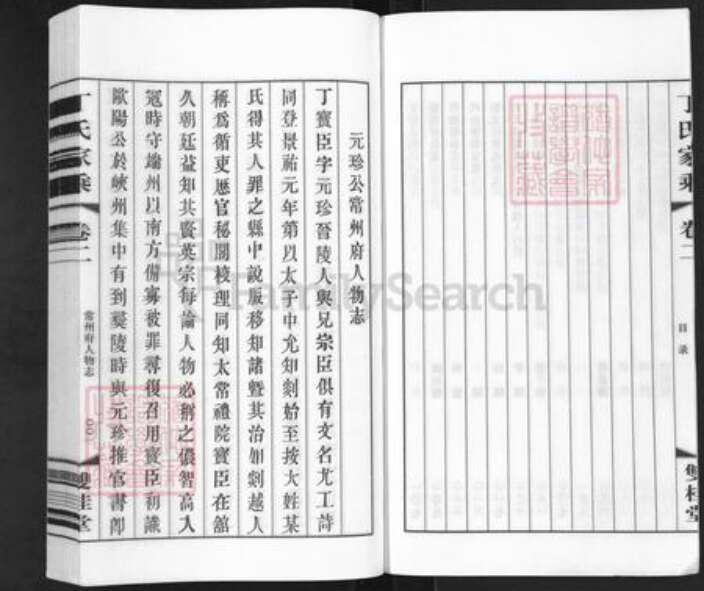 丁氏家乘
卷二
目录
雙桂堂
元珍公常州府人物志
丁寳臣字元珍晉陵人與兄宗臣俱有文名尤工詩
同登景祐元年第以太子中允知剡始至按大姓某
氏得其人罪之縣中說服移知諸暨其治如剡越人
稱爲循吏歷官秘閣校理同知太常禮院寳臣在舘
久朝廷益知其賢英宗每論人物必稱之儂智高入
寇時守端州以南方備寡被罪尋復召用寳臣初識
歐陽公於峽州集中有到夷陵時與元珍推官書卽
丁氏家乘
卷二
常州府人物志
雙桂堂
FamilySearch